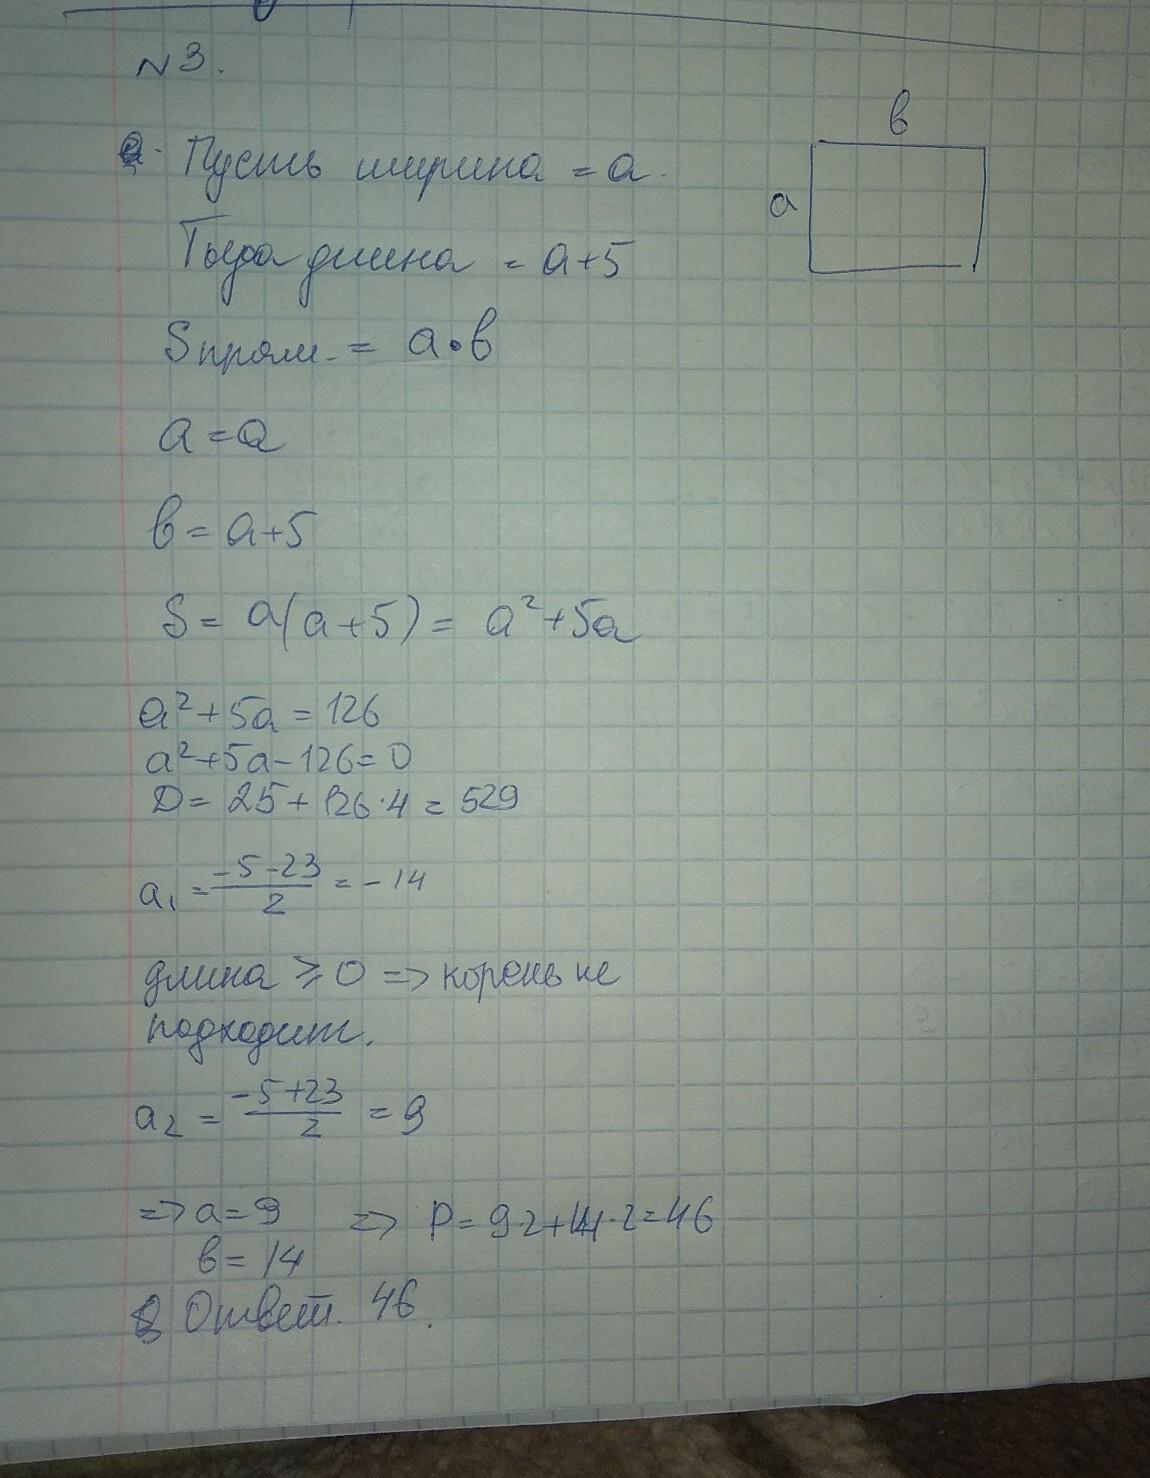 N3.
в
Пусть ширина = a.
a
Тогда длина = a+5
Sпрям. = a•в
a=a
в=a+5
S= a(a+5)= a²+5a
a²+5a=126
a²+5a-126=0
D= 25+126·4=529
a₁ = -5-23/2 = -14
длина ≥ 0 => корень не
подходит.
a₂ = -5+23/2 = 9
=> a=9 => P= 9·2+14·2=46
в= 14
Ответ. 46.